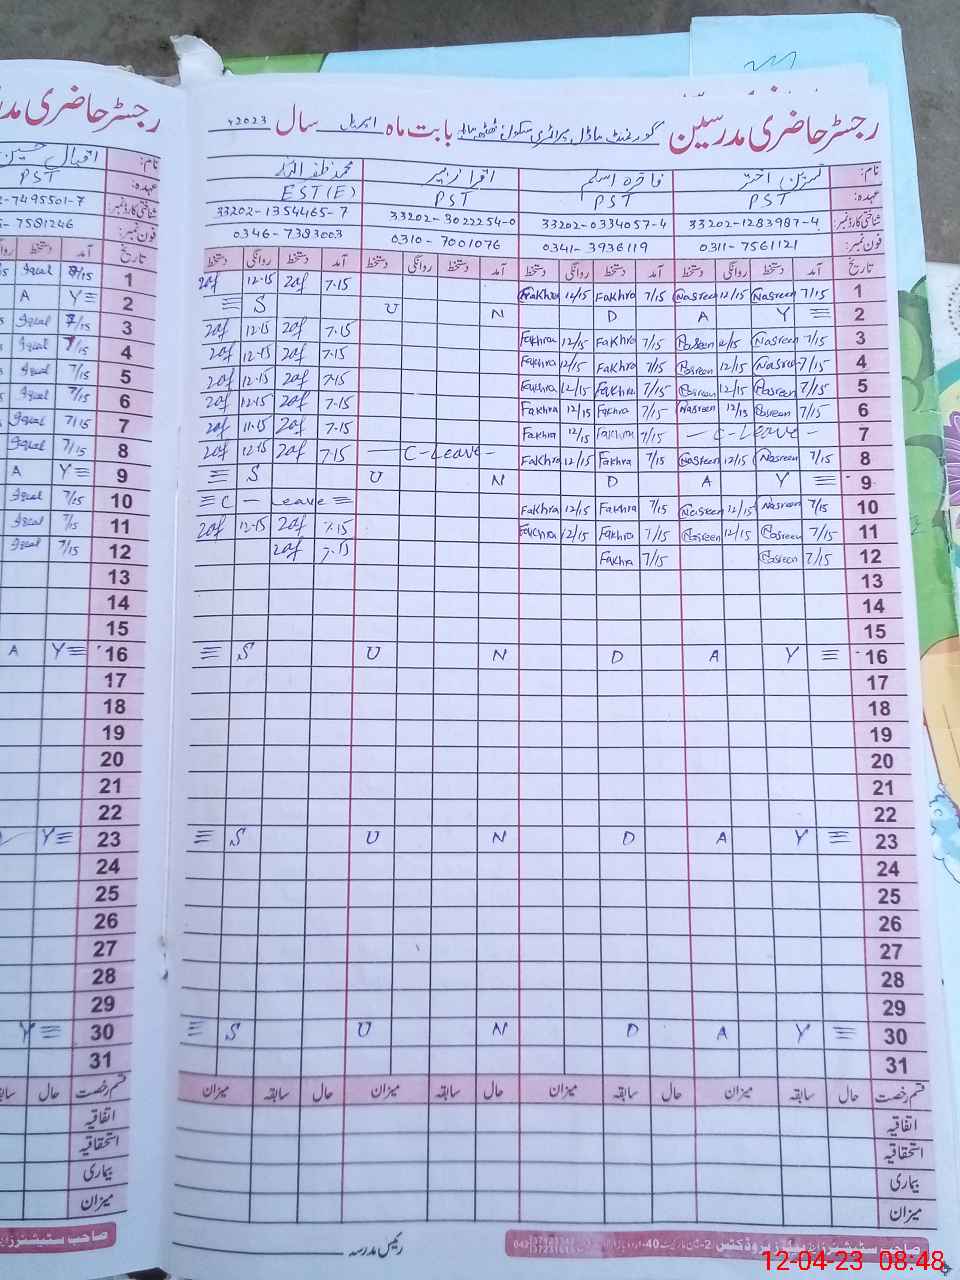 رجسٹر حاضری مدرسین گورنمنٹ ماڈل پرائمری سکول بابت ماہ اپریل سال 2023ء
نام: نسرین اختر فاخرہ اسلم اقرا زبیر محمد ظفر اللہ
عہدہ: PST PST PST EST (E)
شناختی کارڈ نمبر: 33202-1283987-4 33202-0334057-4 33202-3022254-0 33202-1354465-7
فون نمبر: 0311-7561121 0341-3936119 0310-7001076 0346-7383003
تاریخ آمد دستخط روانگی دستخط آمد دستخط روانگی دستخط آمد دستخط روانگی دستخط آمد دستخط روانگی دستخط
1 7/15 Nasreen 12/15 Nasreen 7/15 Fakhra 12/15 Fakhra 7.15 Zaf 12.15 Zaf
2 S U N D A Y
3 7/15 Nasreen 12/15 Nasreen 7/15 Fakhra 12/15 Fakhra 7.15 Zaf 12.15 Zaf
4 7/15 Nasreen 12/15 Nasreen 7/15 Fakhra 12/15 Fakhra 7.15 Zaf 12.15 Zaf
5 7/15 Nasreen 12/15 Nasreen 7/15 Fakhra 12/15 Fakhra 7.15 Zaf 12.15 Zaf
6 7/15 Nasreen 12/15 Nasreen 7/15 Fakhra 12/15 Fakhra 7.15 Zaf 12.15 Zaf
7 C-Leave 7/15 Fakhra 12/15 Fakhra 7.15 Zaf 11.15 Zaf
8 7/15 Nasreen 12/15 Nasreen 7/15 Fakhra 12/15 Fakhra C-Leave 7.15 Zaf 12.15 Zaf
9 S U N D A Y
10 7/15 Nasreen 12/15 Nasreen 7/15 Fakhra 12/15 Fakhra C - Leave
11 7/15 Nasreen 12/15 Nasreen 7/15 Fakhra 12/15 Fakhra 7.15 Zaf 12.15 Zaf
12 7/15 Nasreen 7/15 Fakhra 7.15 Zaf
13
14
15
16 S U N D A Y
17
18
19
20
21
22
23 S U N D A Y
24
25
26
27
28
29
30 S U N D A Y
31
قسم رخصت حال سابقہ میزان حال سابقہ میزان حال سابقہ میزان حال سابقہ میزان
اتفاقیہ
استحقاقیہ
بیماری
میزان
رئیس مدرسہ
صاحب سٹیشنرز
رجسٹر حاضری مدر
نام: اقبال حسین
عہدہ: PST
شناختی کارڈ نمبر: 2-7495501-7
فون نمبر: 7581246
تاریخ آمد دستخط
1 7/15 Iqbal
2 Y A
3 7/15 Iqbal
4 7/15 Iqbal
5 7/15 Iqbal
6 7/15 Iqbal
7 7/15 Iqbal
8 7/15 Iqbal
9 Y A
10 7/15 Iqbal
11 7/15 Iqbal
12 7/15 Iqbal
13
14
15
16 Y A
17
18
19
20
21
22
23 Y
24
25
26
27
28
29
30 Y
31
قسم رخصت حال
اتفاقیہ
استحقاقیہ
بیماری
میزان
صاحب سٹیشنرز
12-04-23 08:48